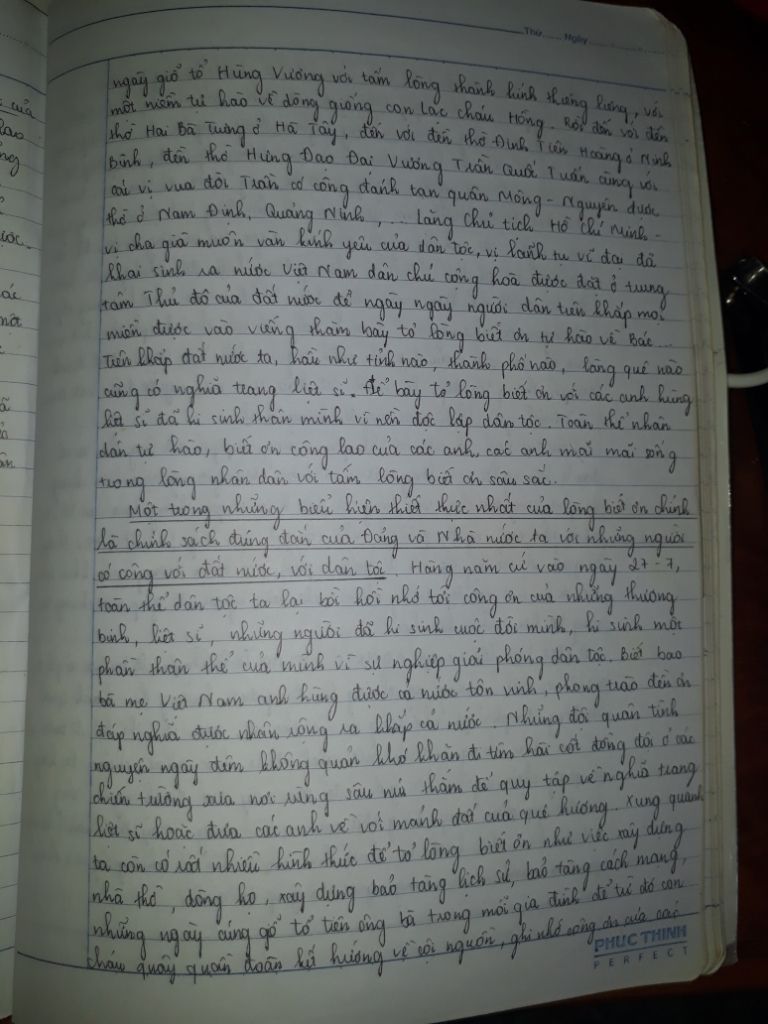 Thứ...... Ngày..................
ngày giổ tổ Hùng Vương với tấm lòng thành kính thiêng liêng, với
một niềm tự hào về dòng giống con Lạc cháu Hồng. Rồi đến với đền
thờ Hai Bà Trưng ở Hà Tây, đến với đền thờ Đinh Tiên Hoàng ở Ninh
Bình, đền thờ Hưng Đạo Đại Vương Trần Quốc Tuấn cùng với
các vị vua đời Trần có công đánh tan quân Mông - Nguyên được
thờ ở Nam Định, Quảng Ninh, ... Lăng Chủ tịch Hồ Chí Minh -
vị cha già muôn vàn kính yêu của dân tộc, vị lãnh tụ vĩ đại đã
khai sinh ra nước Việt Nam dân chủ cộng hoà được đặt ở trung
tâm Thủ đô của đất nước để ngày ngày người dân trên khắp mọi
miền được vào viếng thăm bày tỏ lòng biết ơn tự hào về Bác...
Trên khắp đất nước ta, hầu như tỉnh nào, thành phố nào, làng quê nào
cũng có nghĩa trang liệt sĩ. Để bày tỏ lòng biết ơn với các anh hùng
liệt sĩ đã hi sinh thân mình vì nền độc lập dân tộc. Toàn thể nhân
dân tự hào, biết ơn công lao của các anh, các anh mãi mãi sống
trong lòng nhân dân với tấm lòng biết ơn sâu sắc.
Một trong những biểu hiện thiết thực nhất của lòng biết ơn chính
là chính sách đúng đắn của Đảng và Nhà nước ta với những người
có công với đất nước, với dân tộc. Hàng năm cứ vào ngày 27-7,
toàn thể dân tộc ta lại bồi hồi nhớ tới công ơn của những thương
binh, liệt sĩ, những người đã hi sinh cuộc đời mình, hi sinh một
phần thân thể của mình vì sự nghiệp giải phóng dân tộc. Biết bao
bà mẹ Việt Nam anh hùng được cả nước tôn vinh, phong trào đền ơn
đáp nghĩa được nhân rộng ra khắp cả nước. Những đội quân tình
nguyện ngày đêm không quản khó khăn đi tìm hài cốt đồng đội ở các
chiến trường xưa nơi rừng sâu núi thẳm để quy tập về nghĩa trang
liệt sĩ hoặc đưa các anh về với mảnh đất của quê hương. Xung quanh
ta còn có rất nhiều hình thức để tỏ lòng biết ơn như việc xây dựng
nhà thờ, dòng họ, xây dựng bảo tàng lịch sử, bảo tàng cách mạng,
những ngày cúng giổ tổ tiên ông bà trong mỗi gia đình để từ đó con
cháu quây quần đoàn kết hướng về cội nguồn, ghi nhớ công ơn của các
PHUC THINH
PERFECT